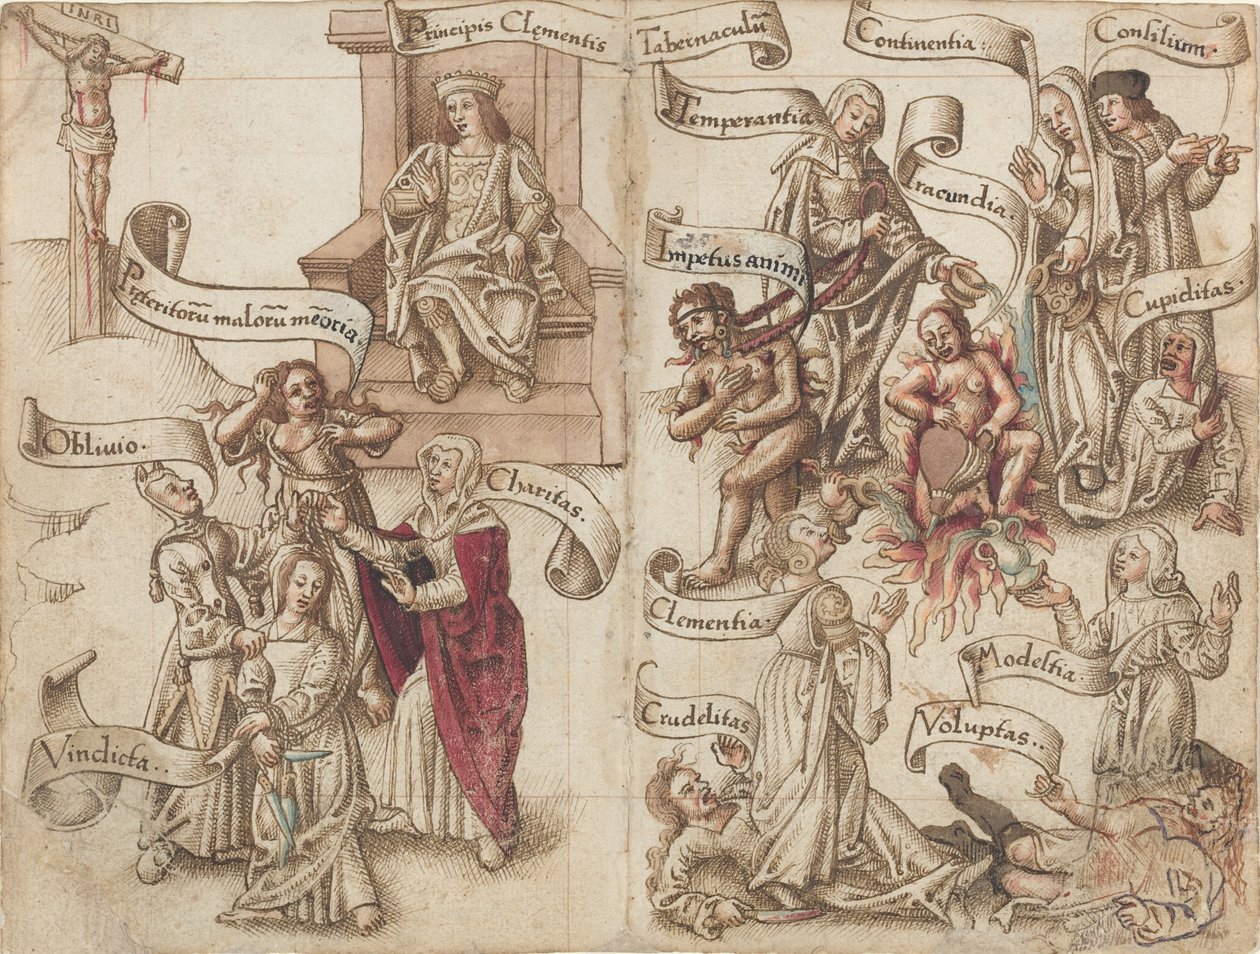 INRI
Principis Clementis Tabernaculũ
Continentia.
Consilium.
Temperantia
Iracundia.
Impetus animi
Cupiditas.
Preteritorũ malorũ memoria
Oblivio.
Charitas.
Clementia.
Modestia.
Crudelitas
Voluptas..
Vindicta..